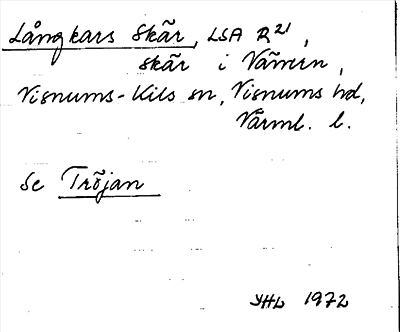 Långkars Skär, LSA R21,
skär i Vänern,
Visnums-Kils sn, Visnums hd,
Värml. l.
Se Tröjan
YHL 1972